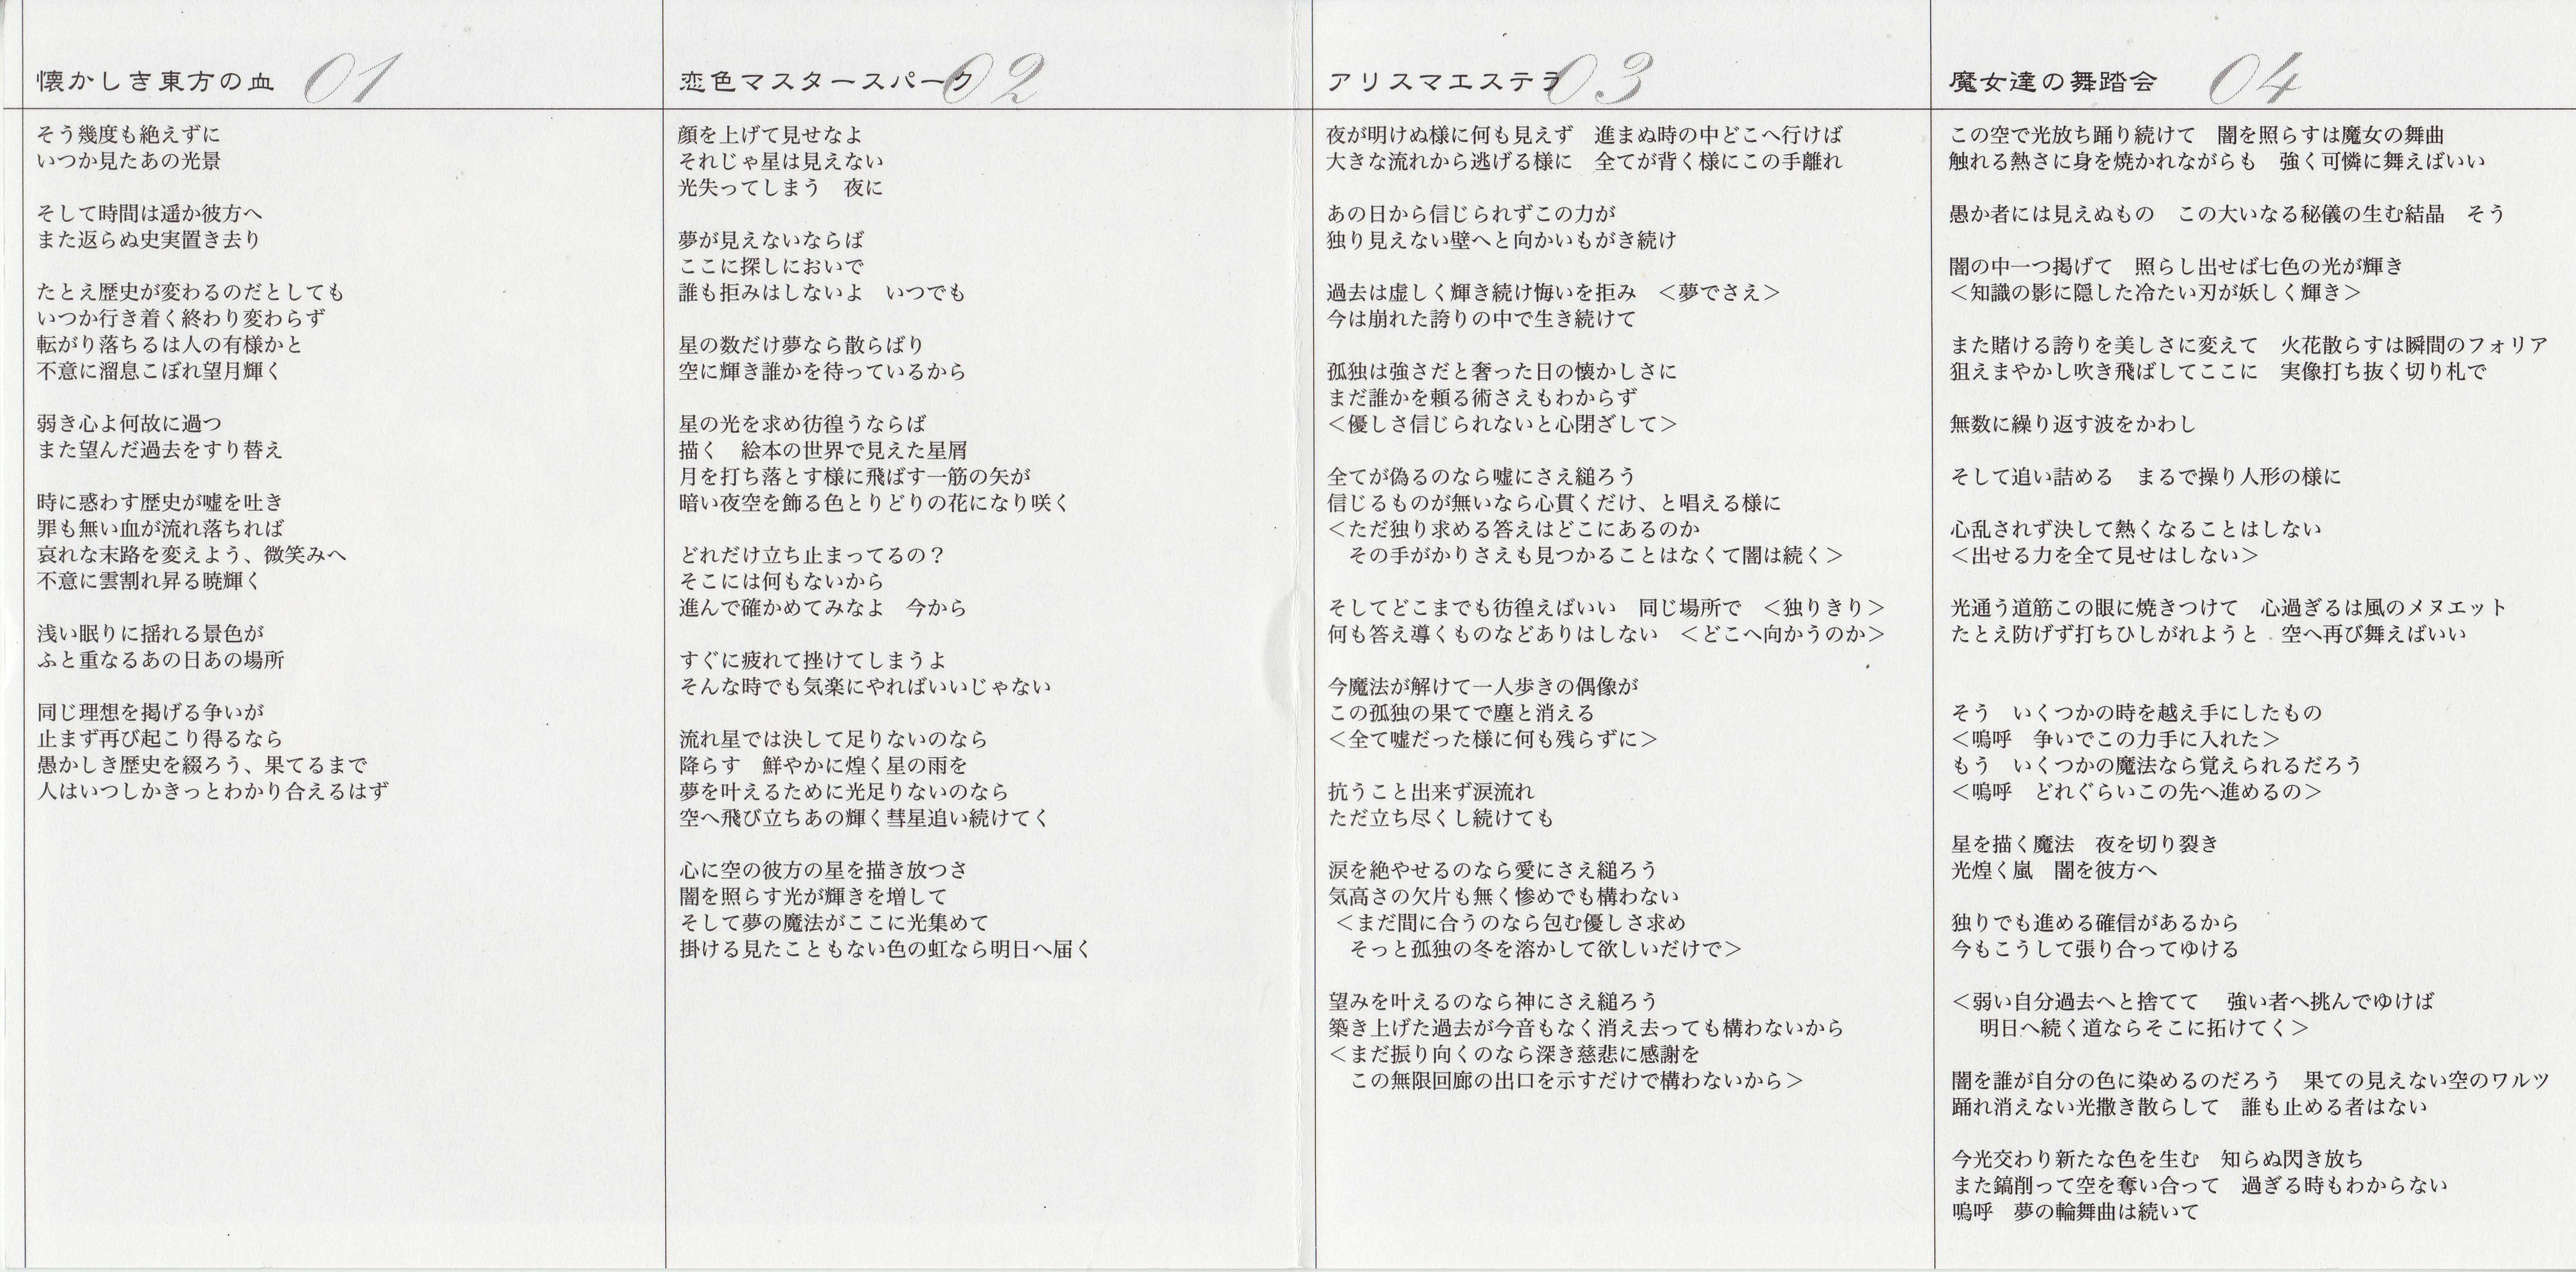 懐かしき東方の血 01
そう幾度も絶えずに
いつか見たあの光景
そして時間は遥か彼方へ
また返らぬ史実置き去り
たとえ歴史が変わるのだとしても
いつか行き着く終わり変わらず
転がり落ちるは人の有様かと
不意に溜息こぼれ望月輝く
弱き心よ何故に過つ
また望んだ過去をすり替え
時に惑わす歴史が嘘を吐き
罪も無い血が流れ落ちれば
哀れな末路を変えよう、微笑みへ
不意に雲割れ昇る暁輝く
浅い眠りに揺れる景色が
ふと重なるあの日あの場所
同じ理想を掲げる争いが
止まず再び起こり得るなら
愚かしき歴史を綴ろう、果てるまで
人はいつしかきっとわかり合えるはず
恋色マスタースパーク 02
顔を上げて見せなよ
それじゃ星は見えない
光失ってしまう　夜に
夢が見えないならば
ここに探しにおいで
誰も拒みはしないよ　いつでも
星の数だけ夢なら散らばり
空に輝き誰かを待っているから
星の光を求め彷徨うならば
描く　絵本の世界で見えた星屑
月を打ち落とす様に飛ばす一筋の矢が
暗い夜空を飾る色とりどりの花になり咲く
どれだけ立ち止まってるの？
そこには何もないから
進んで確かめてみなよ　今から
すぐに疲れて挫けてしまうよ
そんな時でも気楽にやればいいじゃない
流れ星では決して足りないのなら
降らす　鮮やかに煌く星の雨を
夢を叶えるために光足りないのなら
空へ飛び立ちあの輝く彗星追い続けてく
心に空の彼方の星を描き放つさ
闇を照らす光が輝きを増して
そして夢の魔法がここに光集めて
掛ける見たこともない色の虹なら明日へ届く
アリスマエステラ 03
夜が明けぬ様に何も見えず　進まぬ時の中どこへ行けば
大きな流れから逃げる様に　全てが背く様にこの手離れ
あの日から信じられずこの力が
独り見えない壁へと向かいもがき続け
過去は虚しく輝き続け悔いを拒み　＜夢でさえ＞
今は崩れた誇りの中で生き続けて
孤独は強さだと奢った日の懐かしさに
まだ誰かを頼る術さえもわからず
＜優しさ信じられないと心閉ざして＞
全てが偽るのなら嘘にさえ縋ろう
信じるものが無いなら心貫くだけ、と唱える様に
＜ただ独り求める答えはどこにあるのか
その手がかりさえも見つかることはなくて闇は続く＞
そしてどこまでも彷徨えばいい　同じ場所で　＜独りきり＞
何も答え導くものなどありはしない　＜どこへ向かうのか＞
今魔法が解けて一人歩きの偶像が
この孤独の果てで塵と消える
＜全て嘘だった様に何も残らずに＞
抗うこと出来ず涙流れ
ただ立ち尽くし続けても
涙を絶やせるのなら愛にさえ縋ろう
気高さの欠片も無く惨めでも構わない
＜まだ間に合うのなら包む優しさ求め
そっと孤独の冬を溶かして欲しいだけで＞
望みを叶えるのなら神にさえ縋ろう
築き上げた過去が今音もなく消え去っても構わないから
＜まだ振り向くのなら深き慈悲に感謝を
この無限回廊の出口を示すだけで構わないから＞
魔女達の舞踏会 04
この空で光放ち踊り続けて　闇を照らすは魔女の舞曲
触れる熱さに身を焼かれながらも　強く可憐に舞えばいい
愚か者には見えぬもの　この大いなる秘儀の生む結晶　そう
闇の中一つ掲げて　照らし出せば七色の光が輝き
＜知識の影に隠した冷たい刃が妖しく輝き＞
また賭ける誇りを美しさに変えて　火花散らすは瞬間のフォリア
狙えまやかし吹き飛ばしてここに　実像打ち抜く切り札で
無数に繰り返す波をかわし
そして追い詰める　まるで操り人形の様に
心乱されず決して熱くなることはしない
＜出せる力を全て見せはしない＞
光通う道筋この眼に焼きつけて　心過ぎるは風のメヌエット
たとえ防げず打ちひしがれようと　空へ再び舞えばいい
そう　いくつかの時を越え手にしたもの
＜嗚呼　争いでこの力手に入れた＞
もう　いくつかの魔法なら覚えられるだろう
＜嗚呼　どれぐらいこの先へ進めるの＞
星を描く魔法　夜を切り裂き
光煌く嵐　闇を彼方へ
独りでも進める確信があるから
今もこうして張り合ってゆける
＜弱い自分過去へと捨てて　強い者へ挑んでゆけば
明日へ続く道ならそこに拓けてく＞
闇を誰が自分の色に染めるのだろう　果ての見えない空のワルツ
踊れ消えない光撒き散らして　誰も止める者はない
今光交わり新たな色を生む　知らぬ閃き放ち
また鎬削って空を奪い合って　過ぎる時もわからない
嗚呼　夢の輪舞曲は続いて